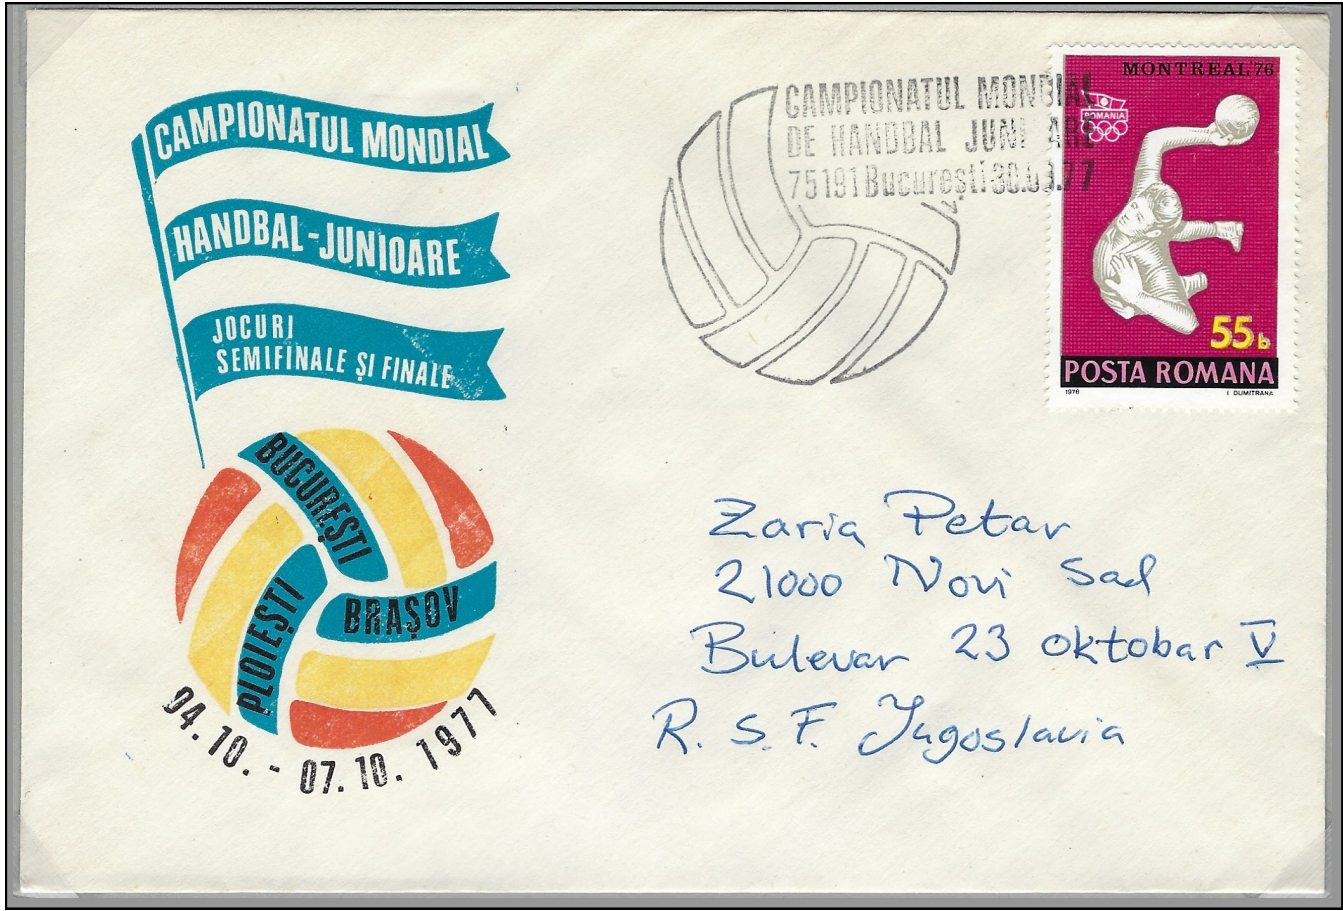 CAMPIONATUL MONDIAL
HANDBAL-JUNIOARE
JOCURI
SEMIFINALE ȘI FINALE
BUCUREȘTI
BRAȘOV
PLOIEȘTI
04.10. - 07.10. 1977
CAMPIONATUL MONDIAL
DE HANDBAL JUNI ARE
75191 București
MONTREAL '76
ROMANIA
55 b
POSTA ROMANA
1976 I DUMITRANA
Zaria Petar
21000 Novi Sad
Bulevar 23 oktobar V
R. S. F. Jugoslavia